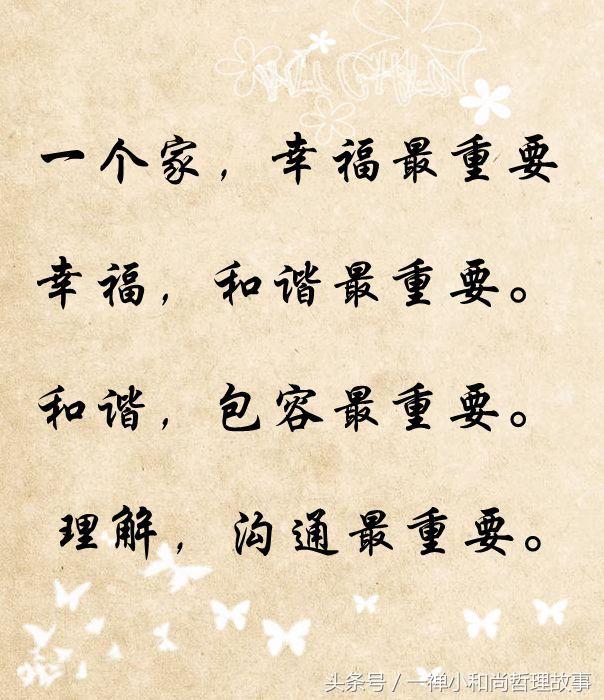 一个家，幸福最重要
幸福，和谐最重要。
和谐，包容最重要。
理解，沟通最重要。
头条号 / 一禅小和尚哲理故事